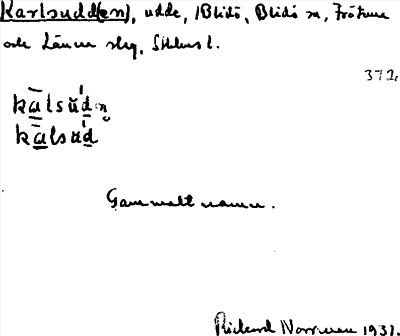 Karlsudd(en), udde, Blidö, Blidö sn, Frötuna
och Länna slg, Sthlms l.
372.
kālsŭd̲n̥
kālsŭd̲
Gammalt namn.
Rickard Norrman 1931.